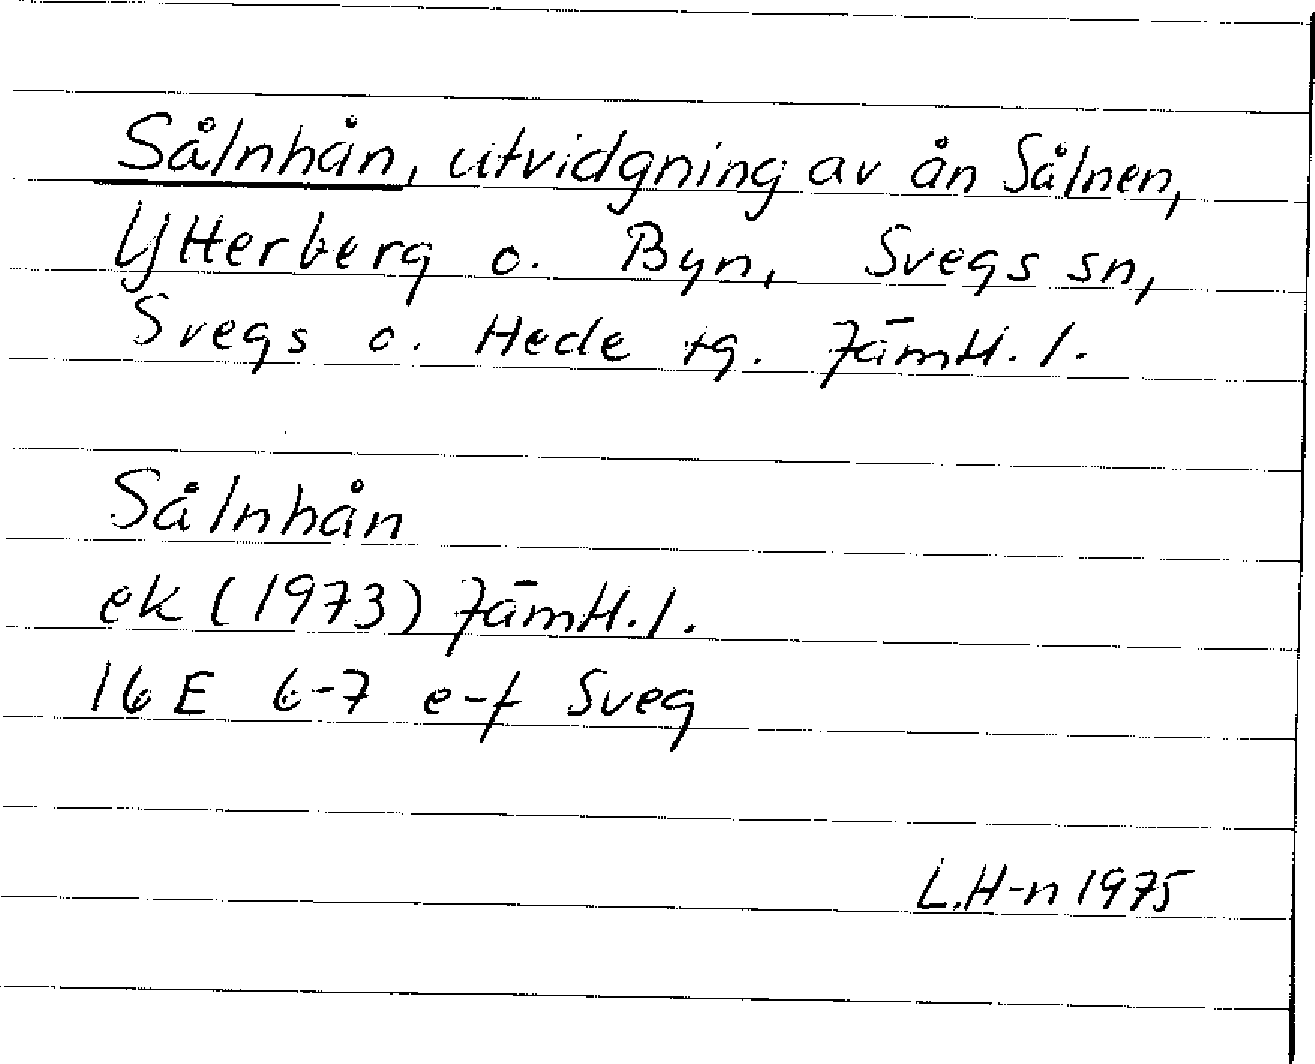 Sålnhån, utvidgning av ån Sålnen,
Ytterberg o. Byn, Svegs sn,
Svegs o. Hede tg. Jämtl. l.
Sålnhån
ek (1973) Jämtl. l.
16 E 6-7 e-f Sveg
L.H-n 1975